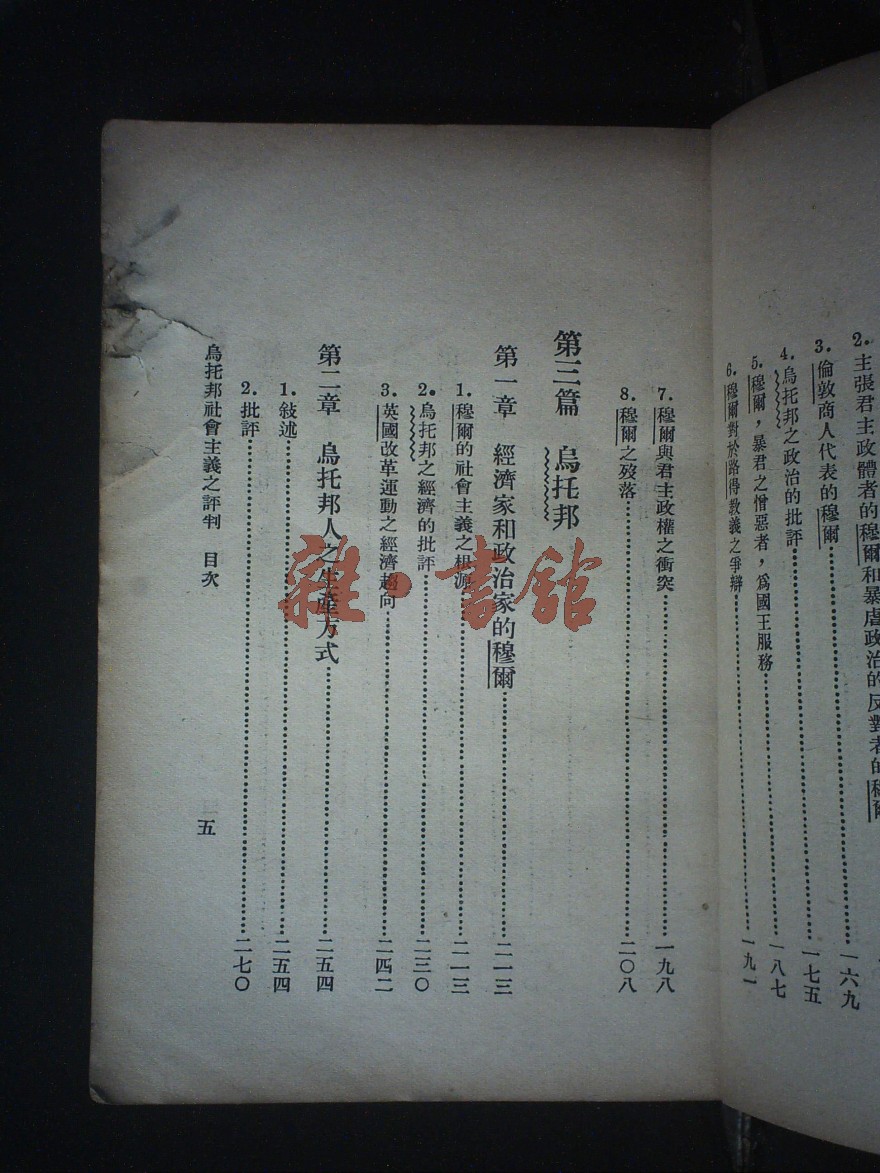 2. 主張君主政體者的穆爾和暴虐政治的反對者的穆爾……一六九
3. 倫敦商人代表的穆爾……一七五
4. 烏托邦之政治的批評……一八七
5. 穆爾，暴君之憎惡者，為國王服務
6. 穆爾對於路得教義之爭辯……一九一
7. 穆爾與君主政權之衝突……一九八
8. 穆爾之歿落……二〇八
第三篇 烏托邦
第一章 經濟家和政治家的穆爾……二一三
1. 穆爾的社會主義之根源……二一三
2. 烏托邦之經濟的批評……二三〇
3. 英國改革運動之經濟趨向……二四二
第二章 烏托邦人之生產方式……二五四
1. 敍述……二五四
2. 批評……二七〇
烏托邦社會主義之評判 目次
五
雜·書館